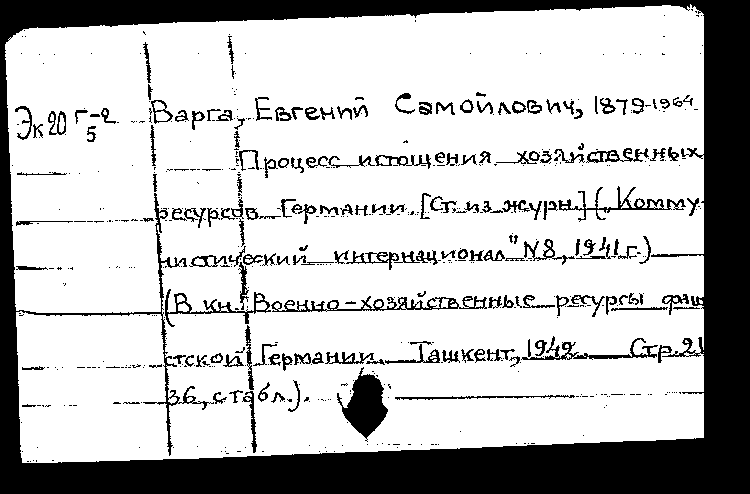 Эк20 Г-2
5
Варга, Евгений Самойлович, 1879-1964
Процесс истощения хозяйственных
ресурсов Германии. [Ст. из журн.] („Комму-
нистический интернационал" №8, 1941 г.)
(В кн.: Военно-хозяйственные ресурсы фаши
стской Германии. Ташкент, 1942. Стр. 21
36, с табл.).